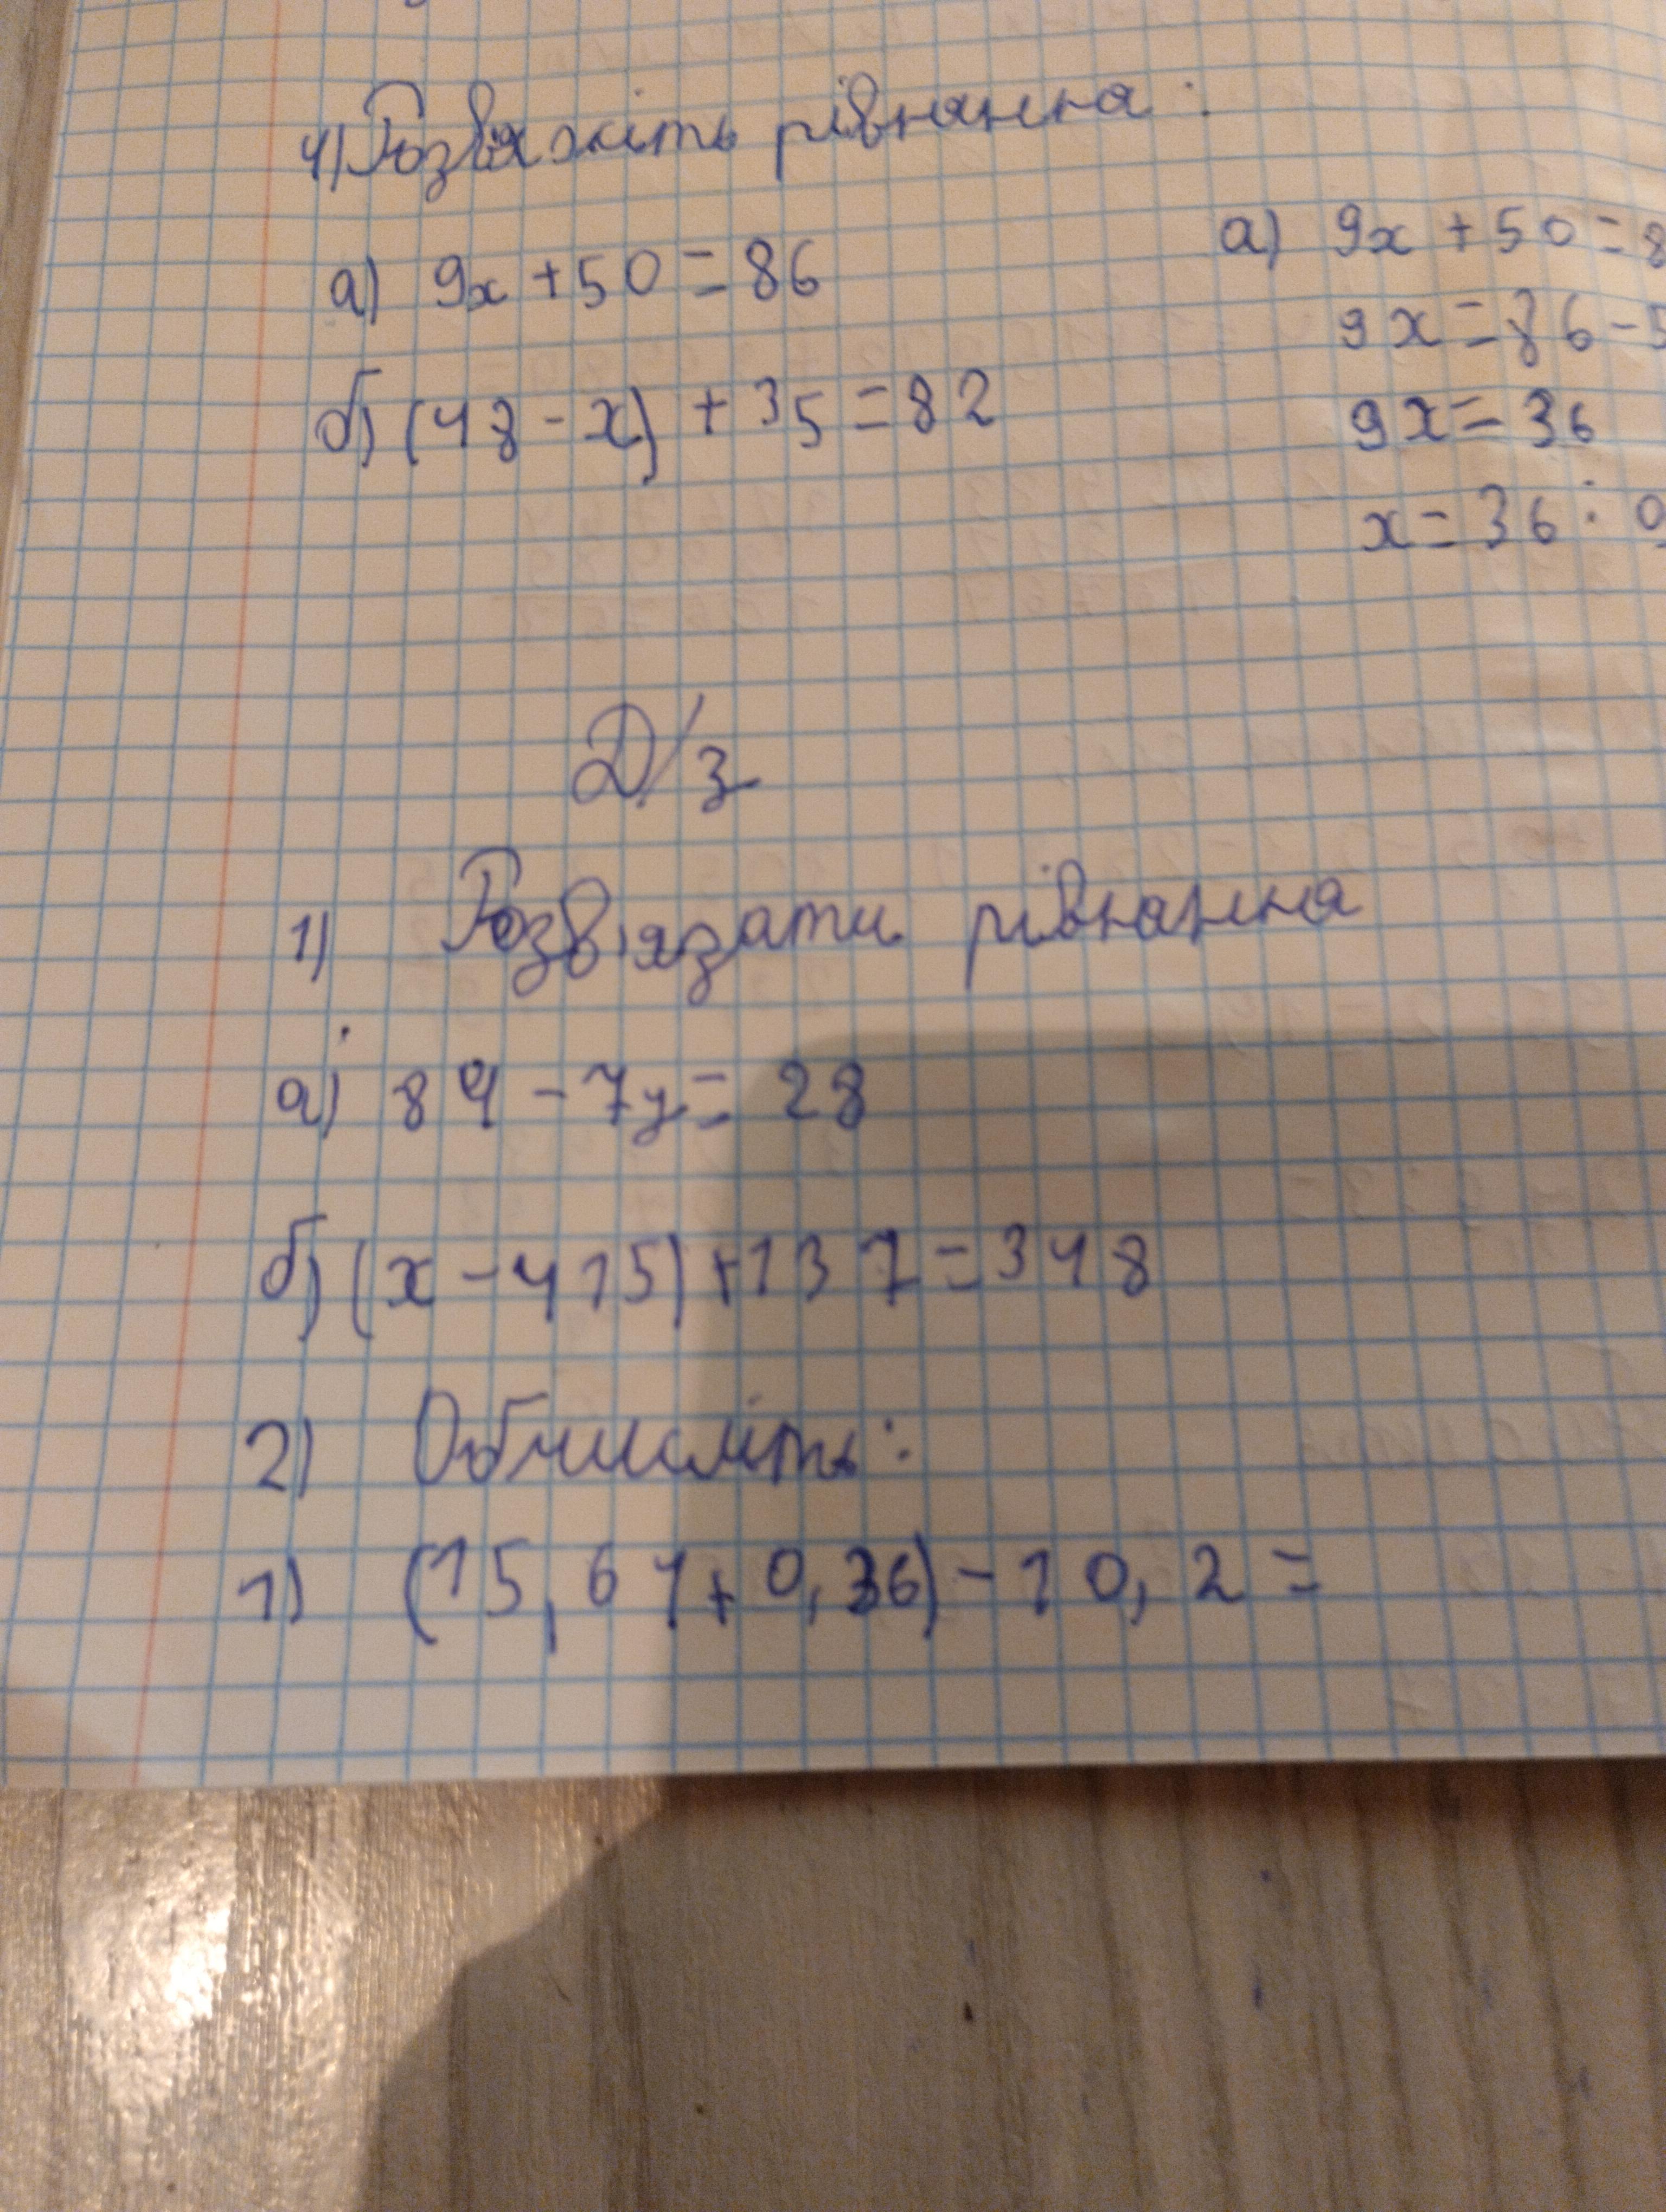 4) Розвяжіть рівняння:
а) 9x + 50 = 86
б) (48 - x) + 35 = 82
а) 9x + 50 = 8
9x = 86 - 5
9x = 36
x = 36 : 9
Д/з
1) Розв'язати рівняння
а) 84 - 7y = 28
б) (x - 415) + 137 = 348
2) Обчисліть:
1) (15,64 + 0,36) - 10,2 =